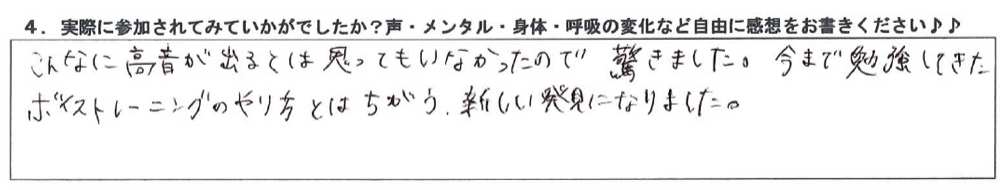 4．実際に参加されてみていかがでしたか？声・メンタル・身体・呼吸の変化など自由に感想をお書きください♪♪
こんなに高音が出るとは思ってもいなかったので驚きました。今まで勉強してきた
ボイストレーニングのやり方とはちがう、新しい発見になりました。